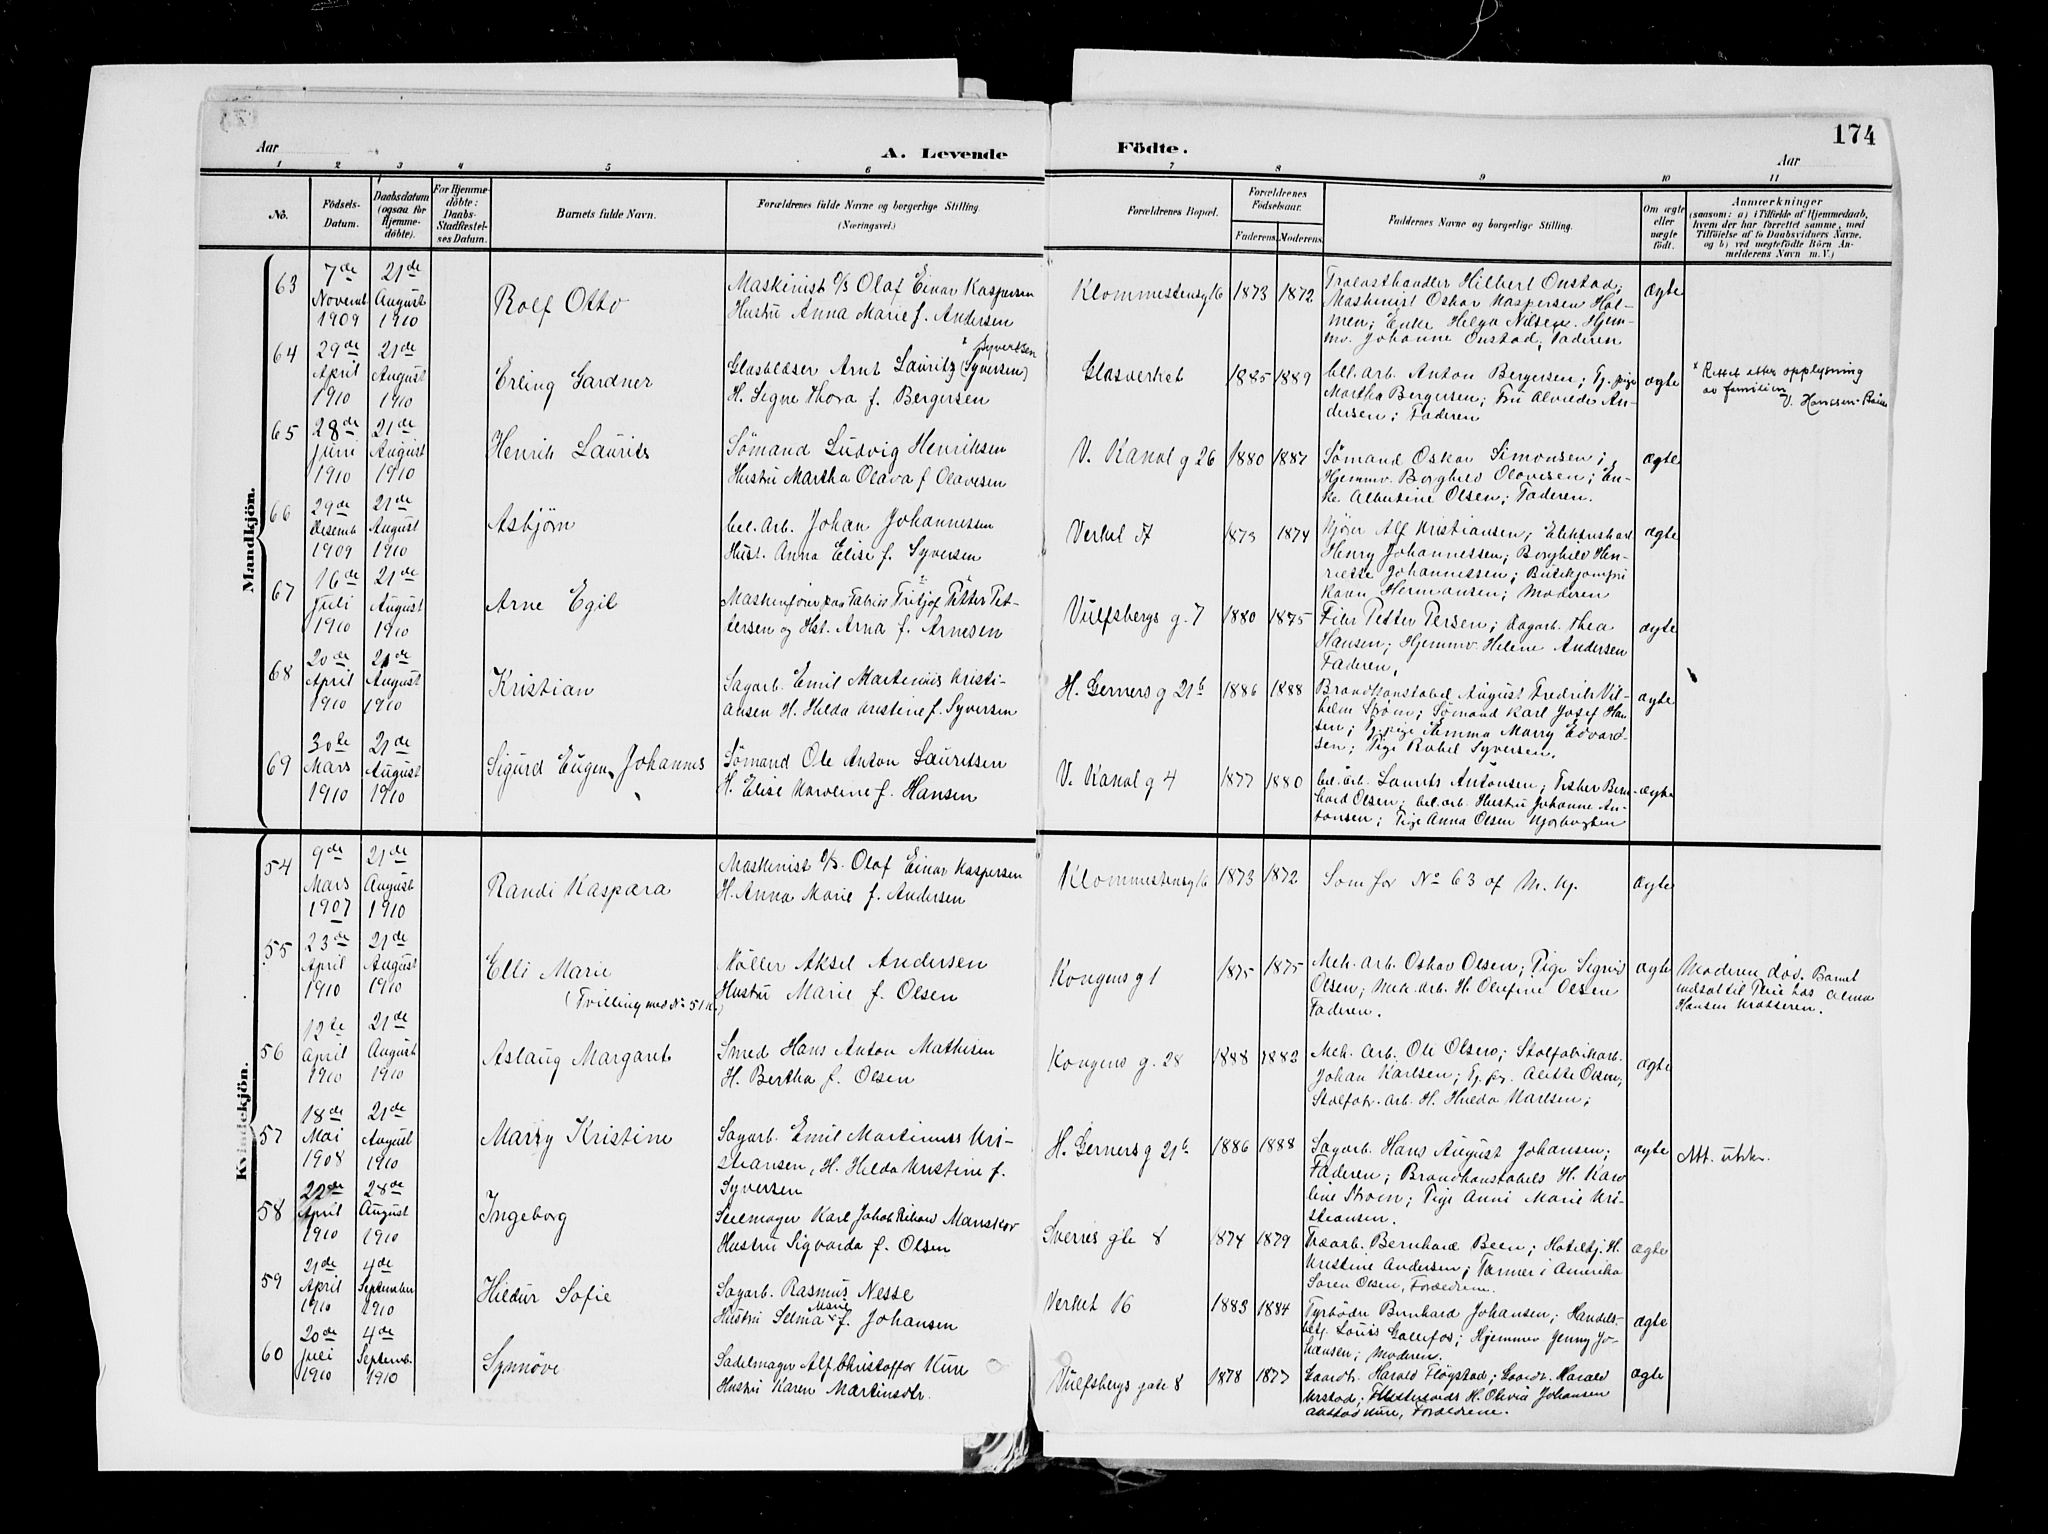 174
Aar
A. Levende
Födte.
Aar
1 2 3 4 5 6 7 8 9 10 11
No.
Födsels-
Datum.
Daabsdatum
(ogsaa for
Hjemme-
döbte).
For Hjemme-
döbte:
Daabs-
Stadfæstel-
ses Datum.
Barnets fulde Navn.
Forældrenes fulde Navne og borgerlige Stilling
(Næringsvei.)
Forældrenes Bopæl.
Forældrenes
Födselsaar.
Faderens. Moderens.
Faddernes Navne og borgerlige Stilling.
Om ægte
eller
uægte
födt.
Anmærkninger
(saasom: a) i Tilfælde af Hjemmedaab,
hvem der har forrettet samme, med
Tilföielse af to Daabsvidners Navne.
og b) ved uegtefödte Börn An-
melderens Navn m. V.)
Mandkjön.
63
7de
Novemb
1909
21de
August
1910
Rolf Otto
Maskinist o/s Olaf Einar Kaspersen
Hustru Anna Marie f. Andersen
Klommestensg 16
1873
1872
Trælasthandler Hilbert Onstad;
Maskinist Oskar Kaspersen Hol-
men; Enke Helga Nilsen. Hjem-
mv. Johanne Onstad; Faderen
ægte
64
29de
April
1910
21de
August
1910
Erling Gardner
x Syvertsen
Glasblæser Arnt Lauritz (Syversen)
H. Signe Thora f. Bergersen
Glasverket
1885
1889
bel. arb. Anton Bergersen; Tj. pige
Martha Bergersen; Fru Alvilde An-
dersen; Faderen
ægte
x Rettet etter opplysning
av familien
65
28de
Juni
1910
21de
August
1910
Henrik Laurits
Sömand Ludvig Henriksen
Hustru Martha Olava f Olavesen
V. Kanal g 26
1880
1887
Sömand Oskar Simonsen;
Hjemmv. Borghild Olavesen; En-
ke. Albertine Olsen; Faderen.
ægte
66
29de
Desemb
1909
21de
August
1910
Asbjörn
bel. arb. Johan Johannessen
Hust. Anna Elise f. Syversen
Verket 57
1873
1874
Kjörer Alf Kristiansen;
Henry Johannessen; Borghild Hen-
riette Johannessen; Butikjomfru
Karen Hermansen; Moderen
ægte
67
16de
Juli
1910
21de
August
1910
Arne Egil
Maskinförer paa Fabrik Fritjof Petter Pet-
tersen og Hst. Arna f. Arnesen
Vulfsbergs g. 7
1880
1875
Filer Petter Persen; dagarb. Thea
Hansen; Hjemmv. Helene Andersen
Faderen,
ægte
68
20de
April
1910
21de
August
1910
Kristian
Sagarb. Emil Martinius Kristi-
ansen H. Hilda Kristine f. Syversen
H. Gerners g 21b
1886
1888
Brandkonstabel August Fredrik Vil-
helm Ström; Sömand Karl Josef Han-
sen; Tj. pige Emma Marry Edvard-
sen; Pige Rakel Syversen.
ægte
69
30te
Mars
1910
21de
August
1910
Sigurd Eugen Johannes
Sömand Ole Anton Lauritsen
H. Elise Karoline f. Hansen
V. Kanal g 4
1877
1880
bel. arb. Laurits Antonsen; Fisker Bern-
hard Olsen; bel. arb. Hustru Johanne An-
tonsen; Pige Anna Olsen
ægte
Kvindekjön.
54
9de
Mars
1907
21de
August
1910
Randi Kaspara
Maskinist o/s. Olaf Einar Kaspersen
H. Anna Marie f. Andersen
Klommestensg 16
1873
1872
Som for No 63 af M. Kj.
ægte
55
23de
April
1910
21de
August
1910
Elli Marie
(Tvilling med No 51 )
Möller Aksel Andersen
Hustru Marie f. Olsen
Kongens g 1
1875
1875
Mek. arb. Oskar Olsen; Pige Sigrid
Olsen; Mek. arb. H. Olefine Olsen
Faderen.
ægte
Moderen död. Barnet
indsat til Pleie hos Alma
Hansen
56
12te
April
1910
21de
August
1910
Aslaug Margaret
Smed Hans Anton Mathisen
H. Bertha f. Olsen
Kongens g. 28
1888
1882
Mek. arb. Ole Olsen; Stolfabrikarb.
Johan Karlsen; Tj. pg. Alette Olsen;
Stolfabr. arb. H. Hulda Karlsen;
ægte
57
18de
Mai
1908
21de
August
1910
Marry Kristine
Sagarb. Emil Martinius Kri-
stiansen, H. Hilda Kristine f.
Syversen
H. Gerners g 21b
1886
1888
Sagarb. Hans August Johansen;
Faderen; Brandkonstabels H. Karo-
line Ström; Pige Anni Marie Kri-
stiansen.
ægte
Att. utskr.
58
22de
April
1910
28de
August
1910
Ingeborg
Seilmager Karl Jakob Rikard Manskov
Hustru Sigvarda f. Olsen
Sverres gte 8
1874
1879
Træarb. Bernhard Been; Hotelbj. H.
Kristine Andersen; Farmer i Amerika
Soren Olsen, Forældrene.
ægte
59
21de
April
1910
4de
September
1910
Hildur Sofie
Sagarb. Rasmus Nesse
Marie
Hustru Selma f. Johansen
Verket 16
1883
1884
Fyrböder Bernhard Johansen; Handels-
betj. Louis Gallefos; Hjemmev Jenny Jo-
hansen; Moderen.
ægte
60
20de
Juli
1910
4de
Septemb.
1910
Synnöve
Sadelmager Alf Christoffer Kure
Hustru Karen Martinsdtr.
Vulfsbergs gate 8
1878
1877
Gaardbr. Harald Flögstad; Gaardbr. Harald
H. Olivia Johansen
Kure, Forældrene.
ægte